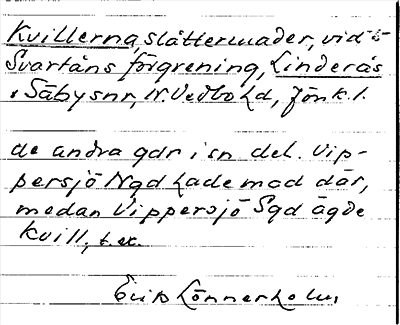 Kvillerna, slåttermader, vid
Svartåns förgrening, Linderås
o Säby snr, N. Vedbo hd, Jönk. l.
de andra gdr i sn del. Vip-
persjö Ngd hade mad där,
medan Vippersjö Sgd ägde
kvill, t.ex.
Erik Lönnerholm